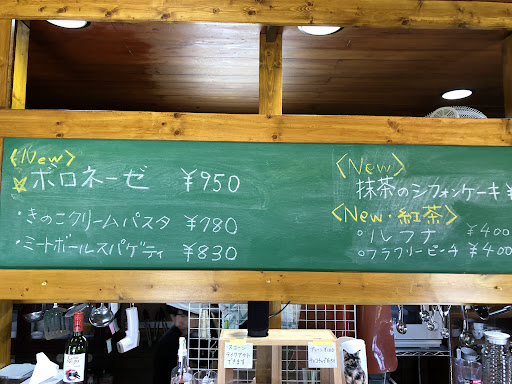 <New>
☆ボロネーゼ ¥950
・きのこクリームパスタ ¥780
・ミートボールスパゲティ ¥830
<New>
抹茶のシフォンケーキ ¥
<New・紅茶>
○ルフナ ¥400
○フラワリーピーチ ¥400
スコーン
テイクアウト
できます